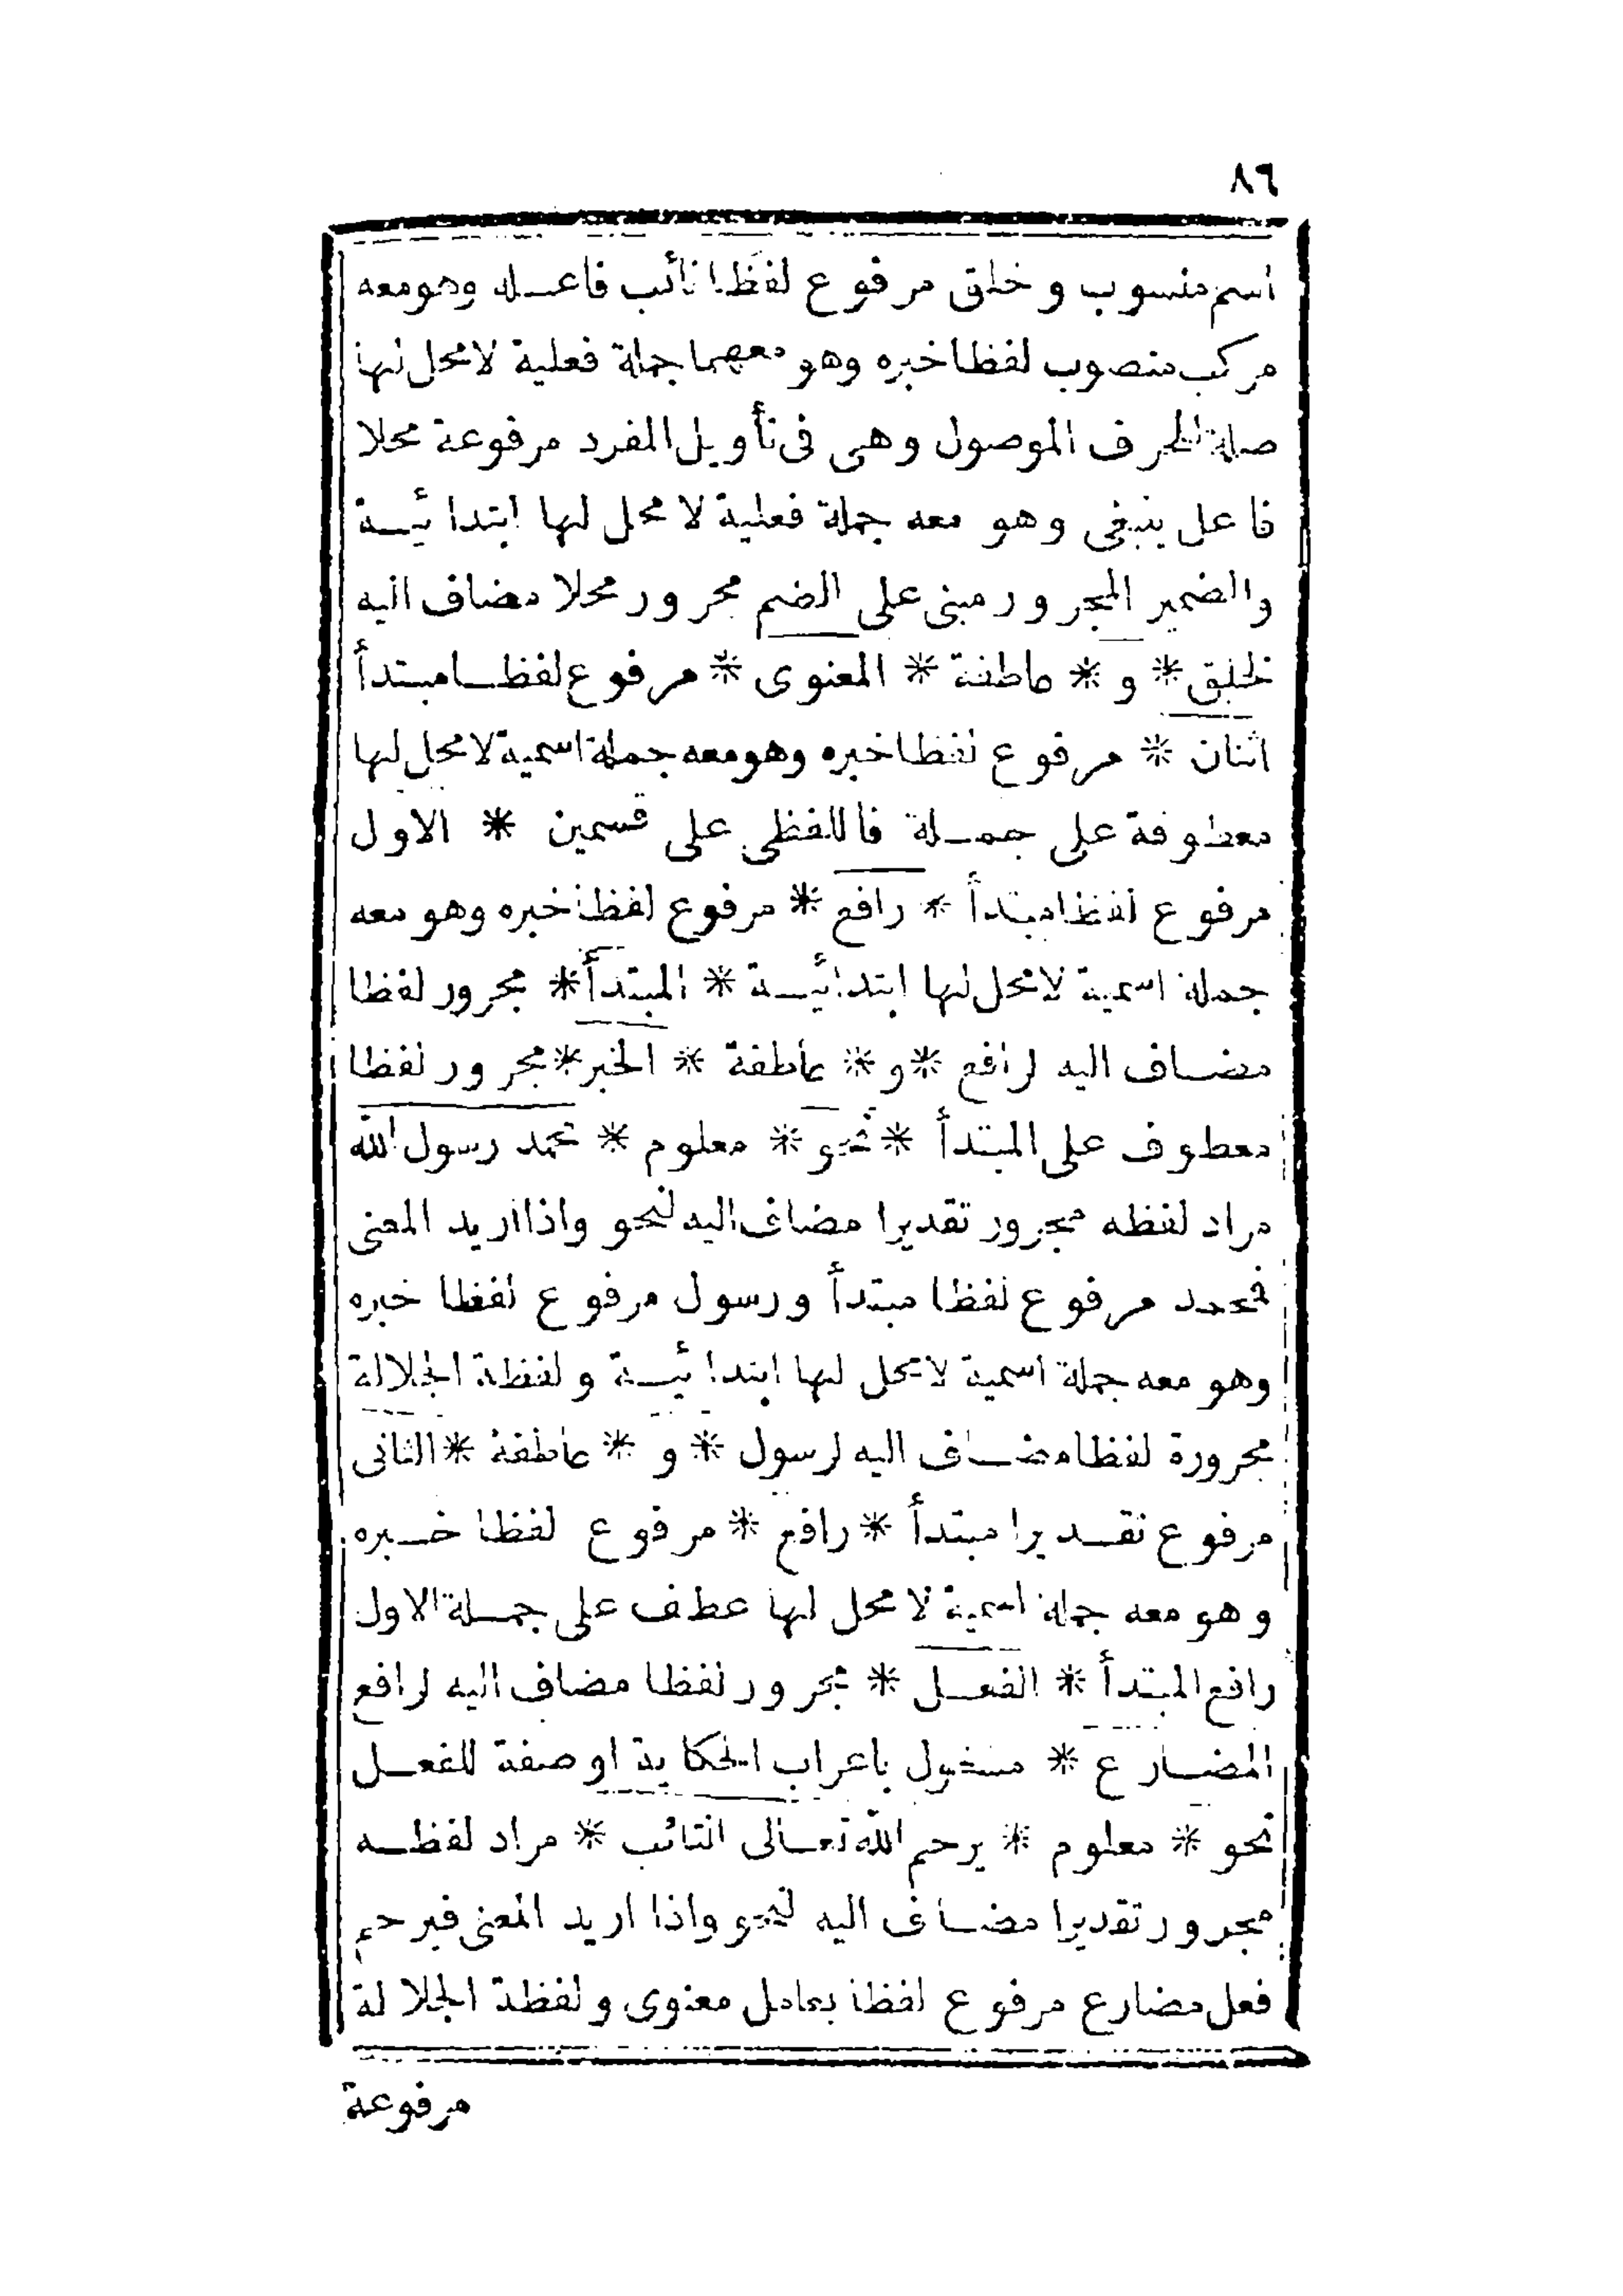 ٨٦
اسم منسوب وخلق مرفوع لفظا نائب فاعله وهو معه
مركب منصوب لفظا خبره وهو معهما جملة فعلية لا محل لها
صلة للحرف الموصول وهى فى تأويل المفرد مرفوعة محلا
فاعل ينبغى وهو معه جملة فعلية لا محل لها ابتدائية
والضمير المجرور مبنى على الضم مجرور محلا مضاف اليه
لخلق * و * عاطفة * المعنوى * مرفوع لفظا مبتدأ
اثنان * مرفوع لفظا خبره وهو معه جملة اسمية لا محل لها
معطوفة على جملة فاللفظى على قسمين * الاول
مرفوع لفظا مبتدأ * رافع * مرفوع لفظا خبره وهو معه
جملة اسمية لا محل لها ابتدائية * المبتدأ * مجرور لفظا
مضاف اليه لرافع * و * عاطفة * الخبر * مجرور لفظا
معطوف على المبتدأ * نحو * معلوم * محمد رسول الله
مراد لفظه مجرور تقديرا مضاف اليه لنحو واذا اريد المعنى
فمحمد مرفوع لفظا مبتدأ ورسول مرفوع لفظا خبره
وهو معه جملة اسمية لا محل لها ابتدائية ولفظة الجلالة
مجرورة لفظا مضاف اليه لرسول * و * عاطفة * الثانى
مرفوع تقديرا مبتدأ * رافع * مرفوع لفظا خبره
وهو معه جملة اسمية لا محل لها عطف على جملة الاول
رافع المبتدأ * الفعل * مجرور لفظا مضاف اليه لرافع
المضارع * مشغول باعراب الحكاية او صفة للفعل
نحو * معلوم * يرحم الله تعالى التائب * مراد لفظه
مجرور تقديرا مضاف اليه لنحو واذا اريد المعنى فيرحم
فعل مضارع مرفوع لفظا بعامل معنوى ولفظة الجلالة
مرفوعة